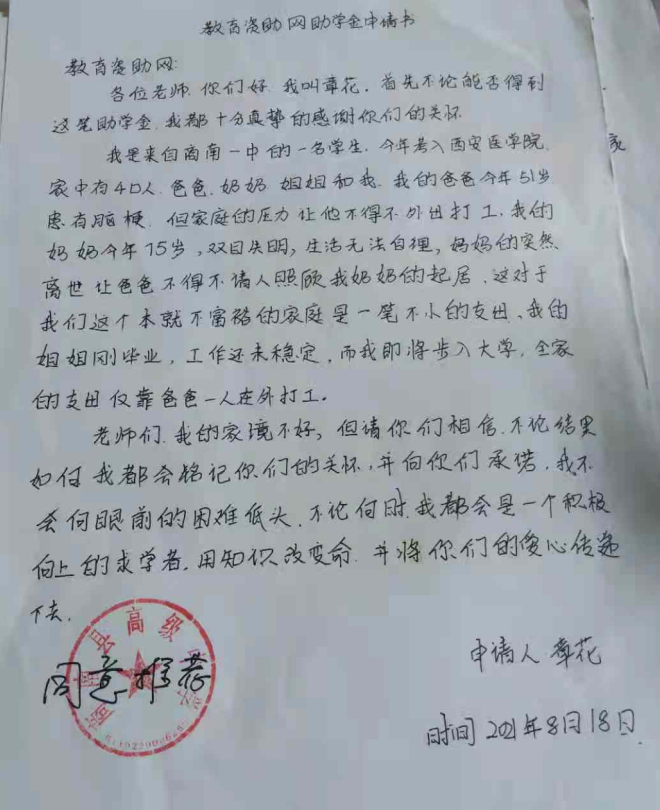 教育资助网助学金申请书
教育资助网:
各位老师, 你们好, 我叫章花, 首先不论能否得到
这笔助学金, 我都十分真挚的感谢你们的关怀.
我是来自商南一中的一名学生, 今年考入西安医学院,
家
家中有4口人, 爸爸, 奶奶, 姐姐和我. 我的爸爸今年51岁
患有脑梗, 但家庭的压力让他不得不外出打工, 我的
奶奶今年75岁, 双目失明, 生活无法自理, 妈妈的突然
离世让爸爸不得不请人照顾我奶奶的起居, 这对于
我们这个本就不富裕的家庭是一笔不小的支出、我的
姐姐刚毕业, 工作还未稳定, 而我即将步入大学, 全家
的支出仅靠爸爸一人在外打工.
老师们, 我的家境不好, 但请你们相信, 不论结果
如何我都会铭记你们的关怀, 并向你们承诺, 我不
会向眼前的困难低头, 不论何时, 我都会是一个积极
向上的求学者, 用知识改变命, 并将你们的爱心传递
下去.
县高级
同意推荐
申请人 章花
时间 2021年8月18日